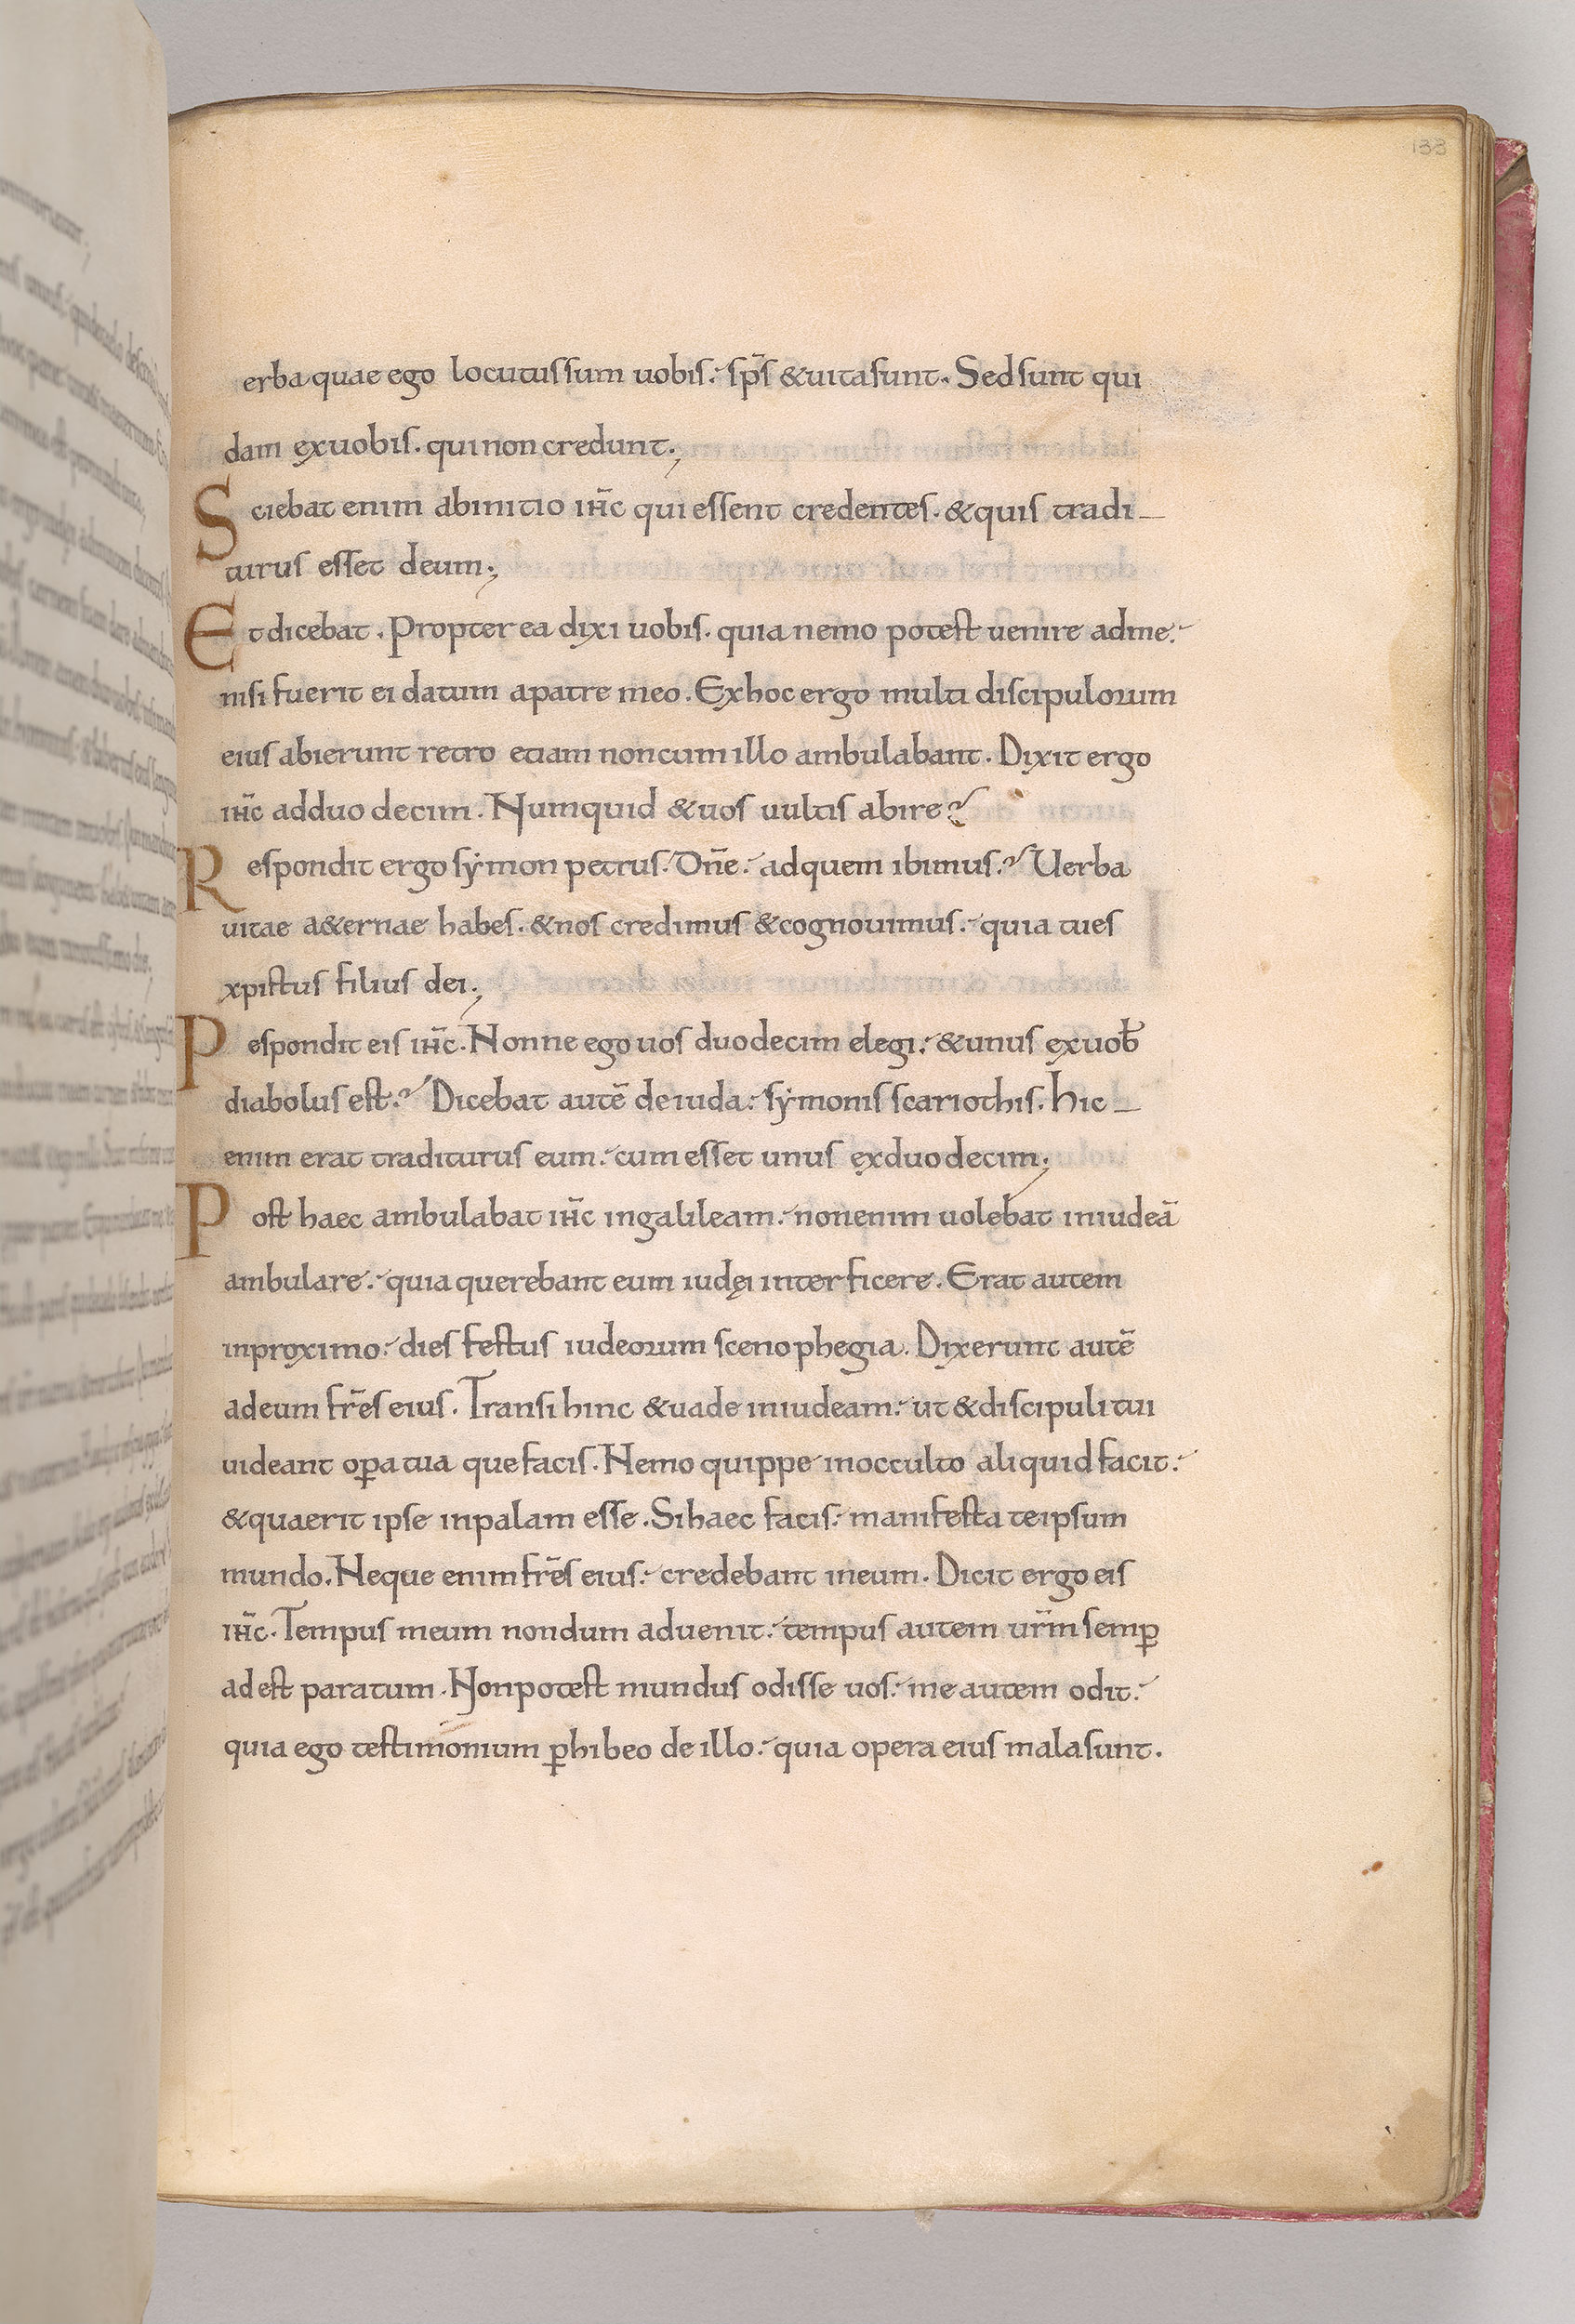 133
erba quae ego locutus sum uobis: sp̄s & uita sunt. Sed sunt qui
dam ex uobis. qui non credunt;
Sciebat enim ab initio ih̄c qui essent credentes. & quis tradi_
turus esset deum;
Et dicebat. Propterea dixi uobis. quia nemo potest uenire ad me:
nisi fuerit ei datum a patre meo. Ex hoc ergo multi discipulorum
eius abierunt retro etiam non cum illo ambulabant. Dixit ergo
ih̄c ad duodecim. Numquid & uos uultis abire?
Respondit ergo sẏmon petrus. Dn̄e: ad quem ibimus? Uerba
uitae a&ernae habes. & nos credimus & cognouimus: quia tu es
xpistus filius dei;
Pespondit eis ih̄c. Nonne ego uos duodecim elegi: & unus ex uob̄
diabolus est? Dicebat autē de iuda: sẏmonis scariothis. hic_
enim erat traditurus eum: cum esset unus ex duodecim;
Post haec ambulabat ih̄c in galileam: non enim uolebat in iudeā
ambulare: quia querebant eum iudęi interficere. Erat autem
in proximo: dies festus iudeorum scenophegia. Dixerunt autē
ad eum fr̄es eius. Transi hinc & uade in iudeam: ut & discipuli tui
uideant oꝑa tua que facis. Nemo quippe in occulto aliquid facit:
& quaerit ipse in palam esse. Si haec facis: manifesta te ipsum
mundo. Neque enim fr̄es eius: credebant in eum. Dicit ergo eis
ih̄c. Tempus meum nondum aduenit: tempus autem ur̄m semꝑ
adest paratum. Non potest mundus odisse uos: me autem odit:
quia ego testimonium ꝑhibeo de illo: quia opera eius mala sunt.